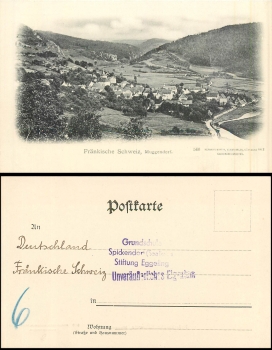 Fränkische Schweiz, Muggendorf.
Postkarte
An
Deutschland
Fränkische Schweiz
Grundschule
Spickendorf
Stiftung Eggeling
Unveräußerliches Eigentum
in
Wohnung
(Straße und Hausnummer)
6